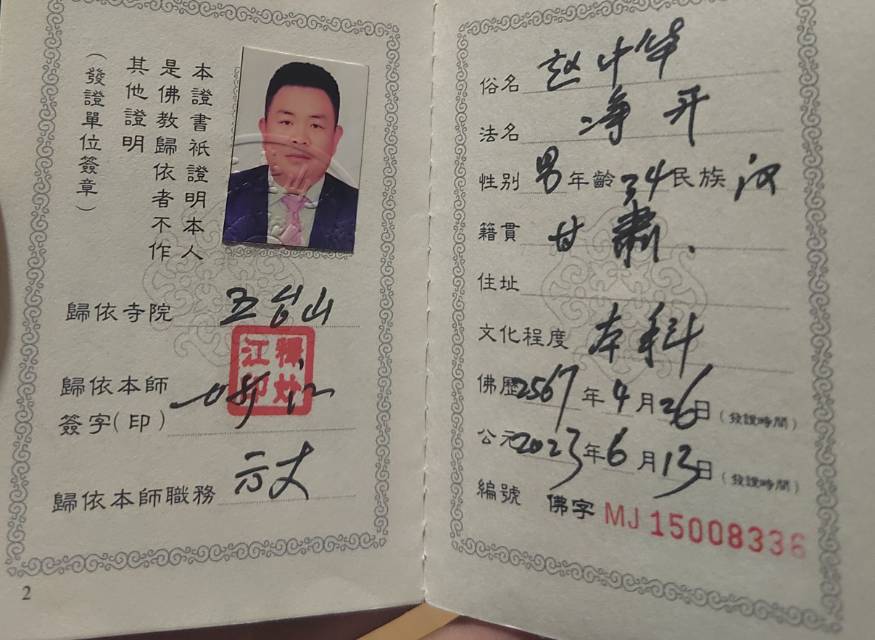 本證書祇證明本人
是佛教歸依者不作
其他證明
（發證單位簽章）
歸依寺院 五台山
歸依本師
簽字（印）
釋妙江印
歸依本師職務 方丈
2
俗名 赵中华
法名 净开
性别 男 年齡 34 民族 汉
籍貫 甘肃.
住址
文化程度 本科
佛歷2567年4月26日（發證時間）
公元2023年6月13日（發證時間）
編號 佛字 MJ 15008336